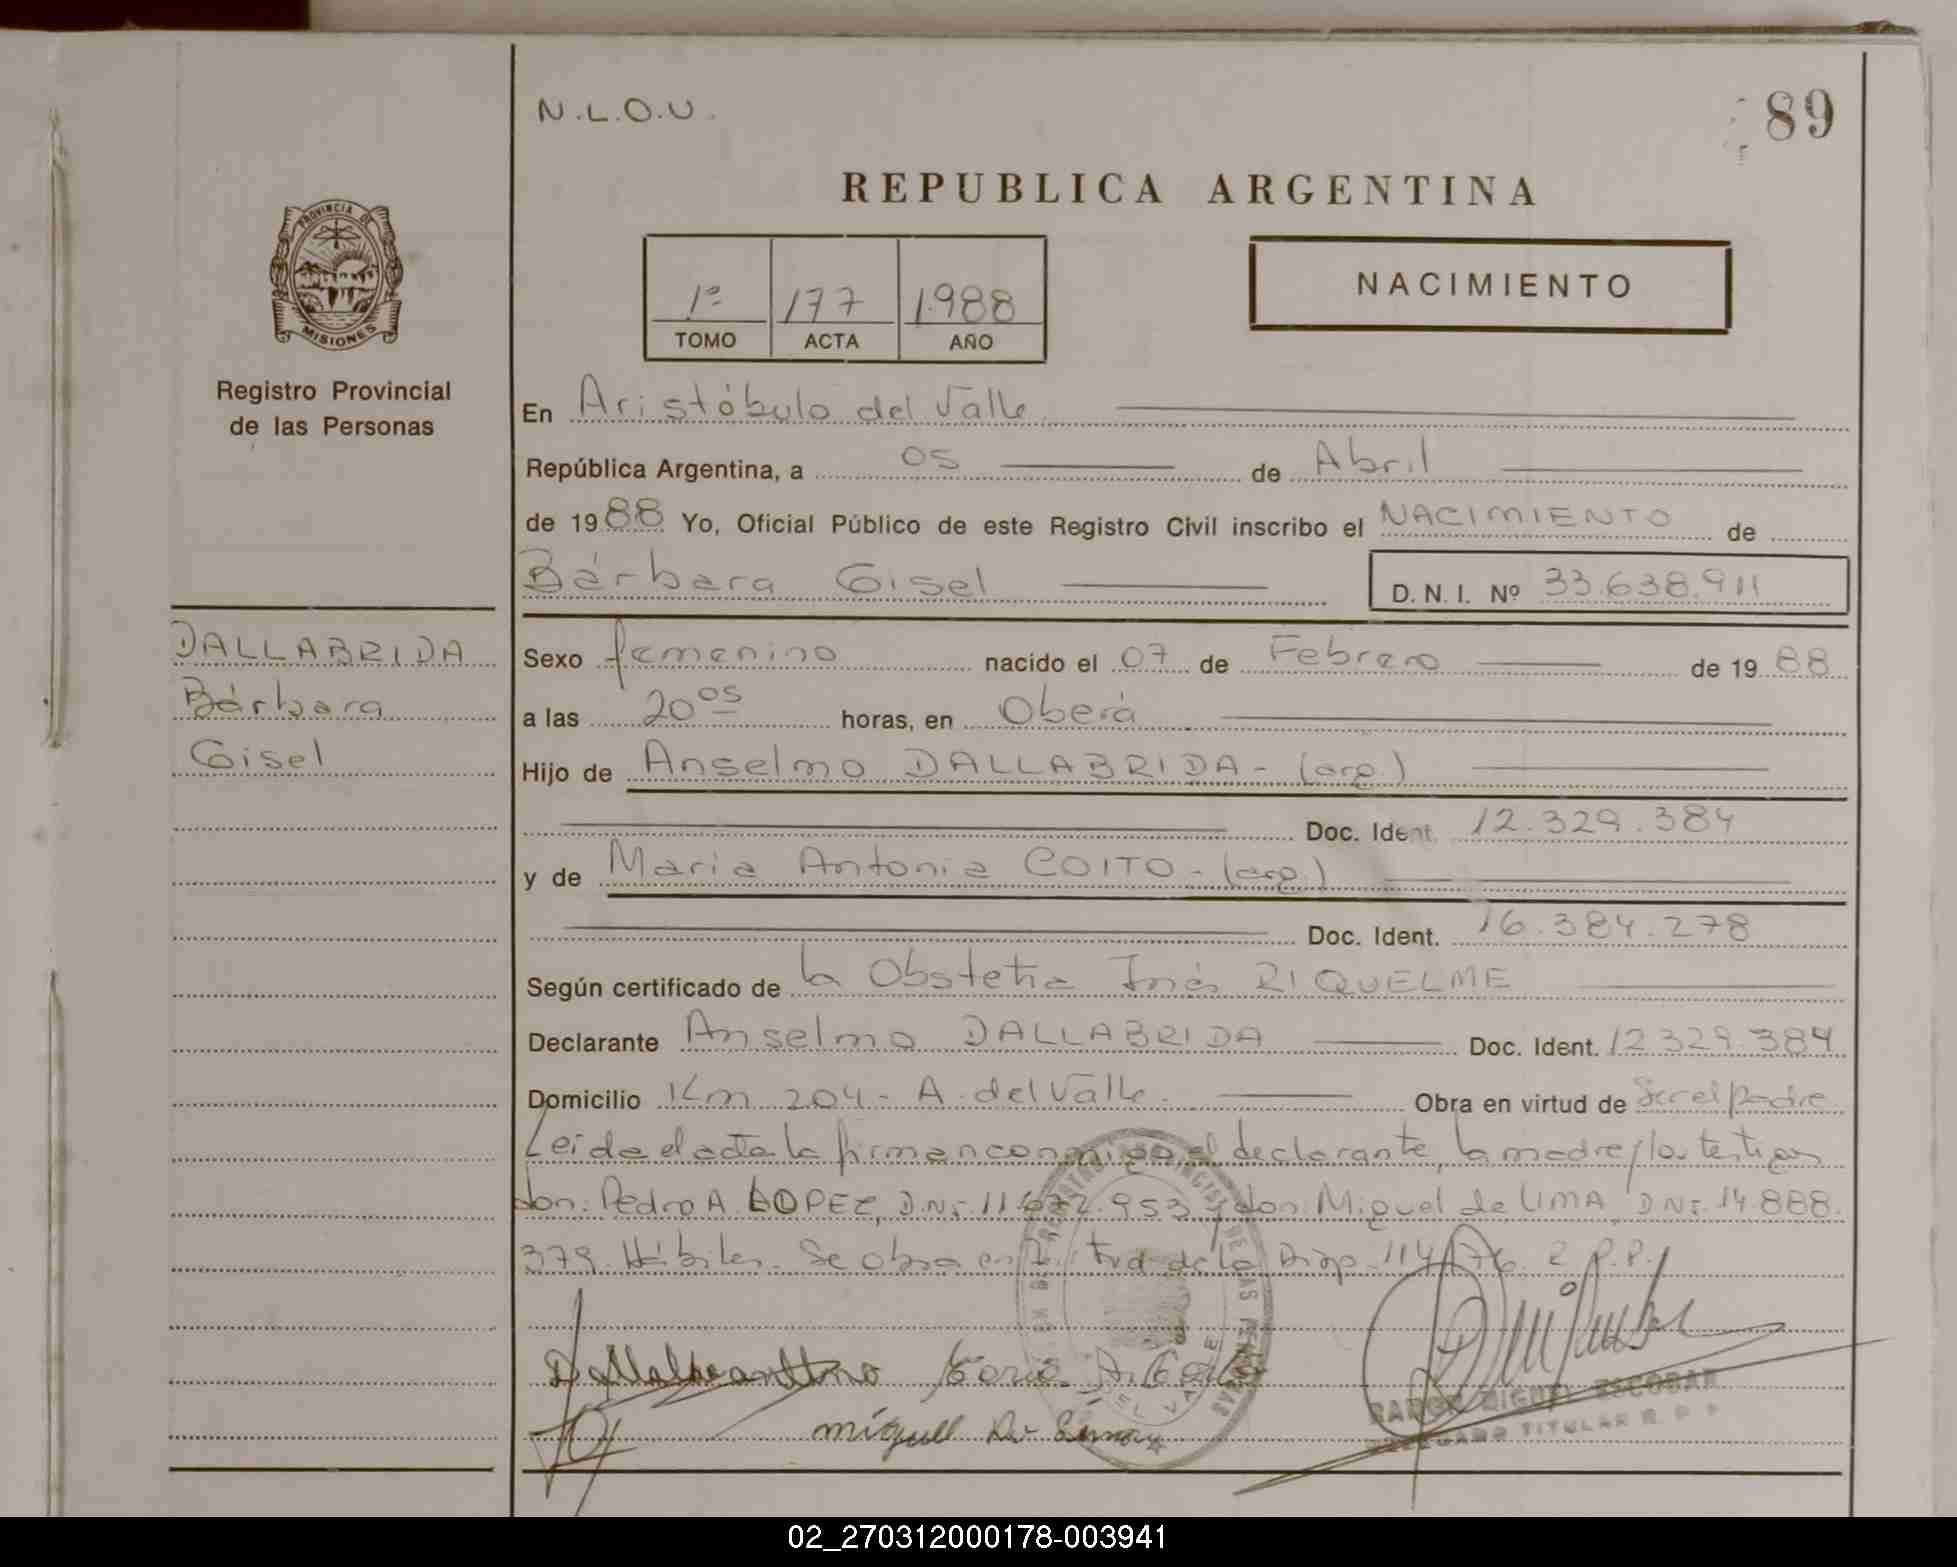 N.L.O.U.
89
REPUBLICA ARGENTINA
PROVINCIA DE
MISIONES
Registro Provincial
de las Personas
1º 177 1988
TOMO ACTA AÑO
NACIMIENTO
En Aristóbulo del Valle
República Argentina, a 05 de Abril
de 1988 Yo, Oficial Público de este Registro Civil inscribo el NACIMIENTO de
Bárbara Gisel D. N. I. Nº 33.638.911
DALLABRIDA
Bárbara
Gisel
Sexo femenino nacido el 07 de Febrero de 1988
a las 20 05 horas, en Oberá
Hijo de Anselmo DALLABRIDA - (arg.)
Doc. Ident. 12.329.384
y de Maria Antonia COITO - (arg.)
Doc. Ident. 16.384.278
Según certificado de la Obstetra Inés RIQUELME
Declarante Anselmo DALLABRIDA Doc. Ident. 12.329.384
Domicilio Km 204 - A. del Valle. Obra en virtud de Ser el padre
Leida el acta la firman conmigo el declarante, la madre y los testigos
don: Pedro A. LOPEZ, D.N.I. 11. .953 y don: Miguel de LIMA, D.N.I. 14.888.
379. Hábiles. Se obra en virtud de la Disp. 114/76. R.P.P.
RAMON MIGUEL ESCOBAR
DELEGADO TITULAR R. P. P.
DEL VALLE
02_270312000178-003941